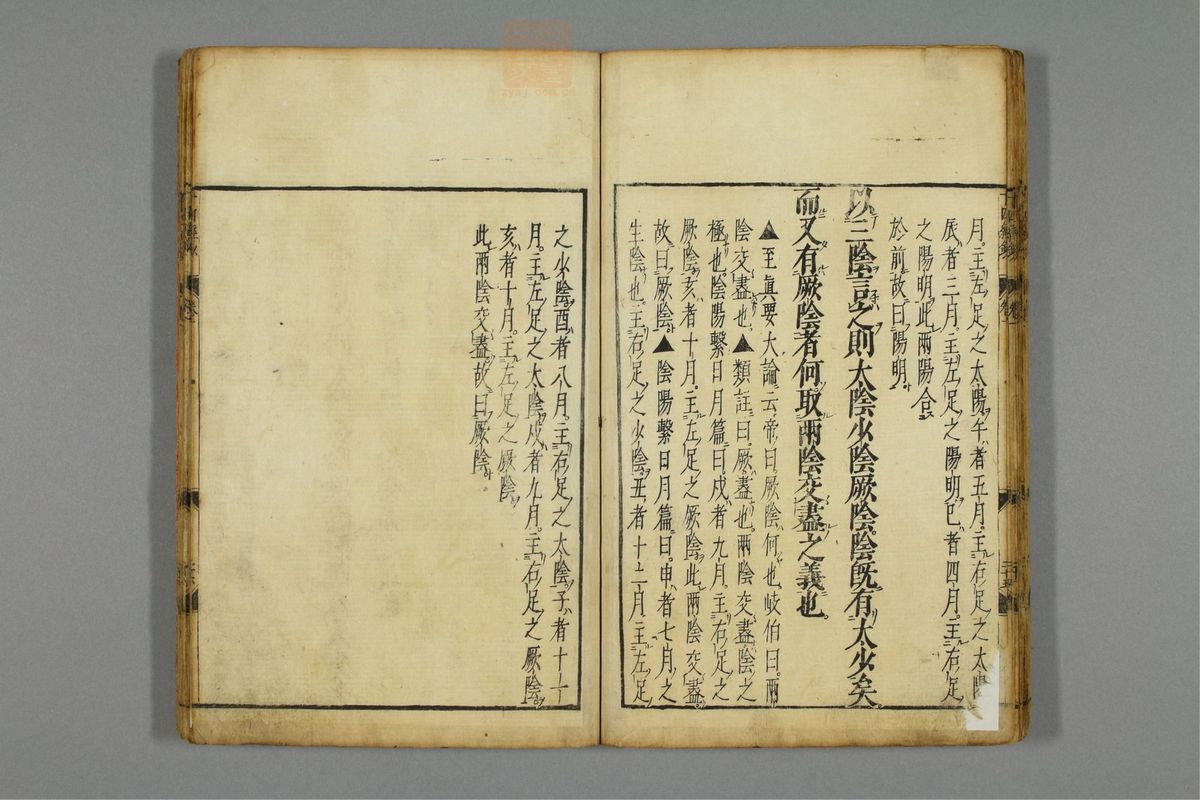 月主左足之太陽午者五月主右足之太陽
辰者三月主左足之陽明巳者四月主右足
之陽明此兩陽合
於前故曰陽明
以三陰言之則太陰少陰厥陰陰既有太少矣
而又有厥陰者何取兩陰交盡之義也
▲至眞要大論云帝曰厥陰何也岐伯曰兩
陰交盡也▲類註曰厥盡也兩陰交盡陰之
極也陰陽繫日月篇曰戌者九月主右足之
厥陰亥者十月主左足之厥陰此兩陰交盡
故曰厥陰▲陰陽繫日月篇曰申者七月之
生陰也主右足之少陰丑者十二月主左足
之少陰酉者八月主右足之太陰子者十一
月主左足之太陰戌者九月主右足之厥陰
亥者十月主左足之厥陰
此兩陰交盡故曰厥陰